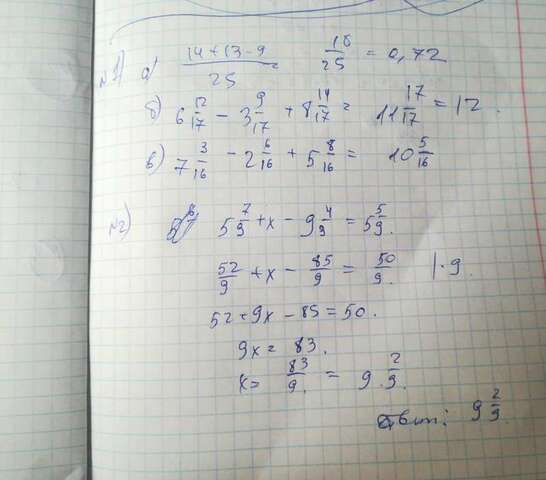 №1) а) (14+13-9)/25 18/25 = 0,72
б) 6 12/17 - 3 9/17 + 8 14/17 = 11 17/17 = 12.
в) 7 3/16 - 2 6/16 + 5 8/16 = 10 5/16
№2) 5 7/9 + x - 9 4/9 = 5 5/9.
52/9 + x - 85/9 = 50/9. |·9
52 + 9x - 85 = 50.
9x = 83.
x = 83/9. = 9 2/9.
Ответ: 9 2/9.